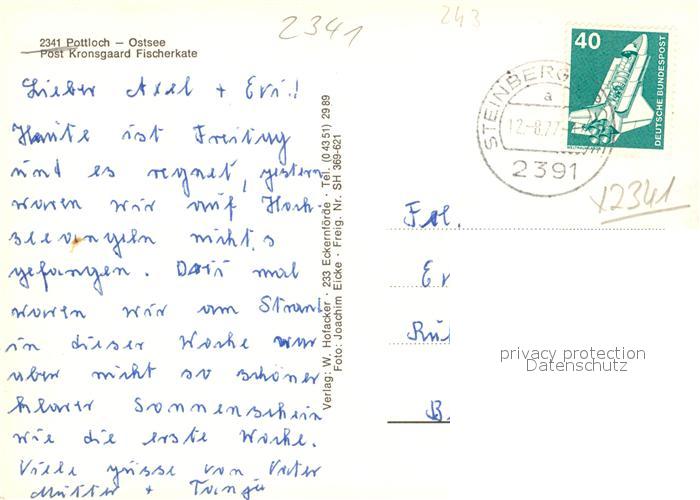 2341
243
2341 Pottloch – Ostsee
Post Kronsgaard Fischerkate
Lieber Axel + Evi!
Heute ist Freitag
und es regnet, gestern
waren wir auf Hoch-
seeangeln nichts
gefangen. Drei mal
waren wir am Strand
in dieser Woche war
aber nicht so schöner
klarer Sonnenschein
wie die erste Woche.
Viele grüsse von Vater
Mutter + Tanja
Verlag: W. Hofacker · 233 Eckernförde · Tel. (04351) 2989
Foto: Joachim Eicke · Freig. Nr. SH 369-621
STEINBERG
a
12.-8.77
2391
40
DEUTSCHE BUNDESPOST
x2341
Frl.
Ev
B.
privacy protection
Datenschutz